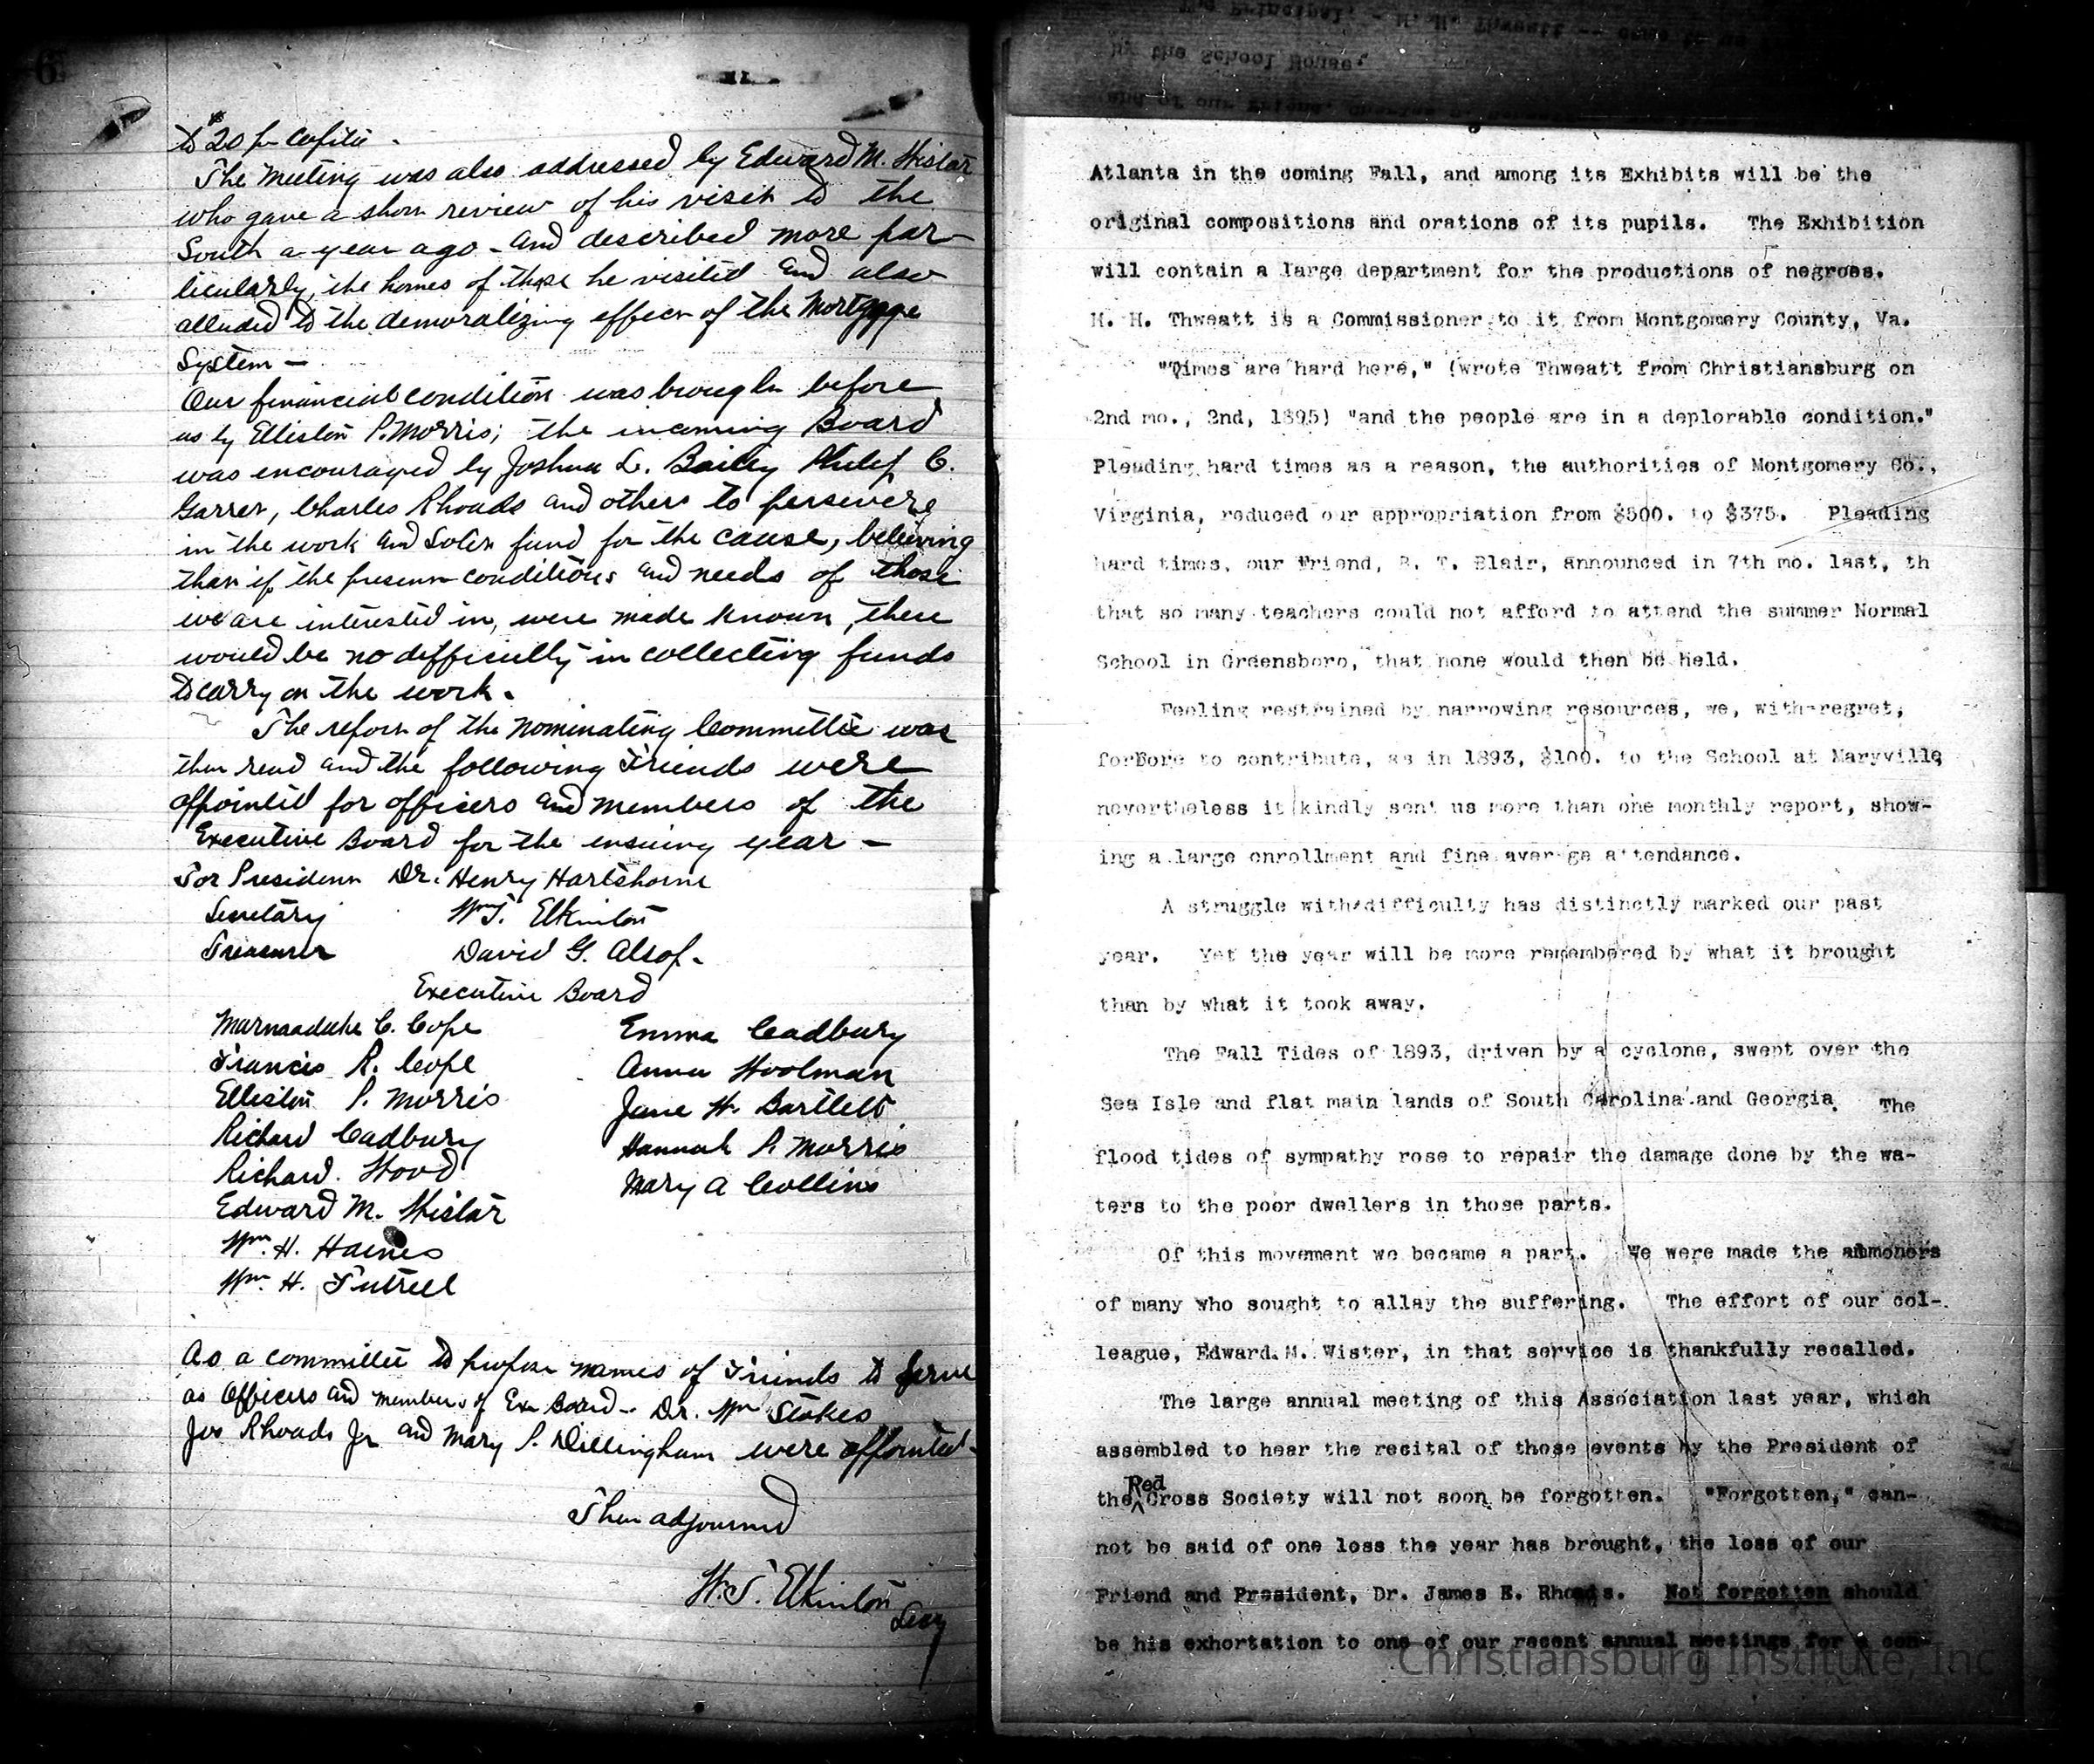 6
to $20 pr Capita -
The Meeting was also addressed by Edward M. Wistar
who gave a short review of his visit to the
South a year ago - and described more par-
ticularly, the homes of those he visited and also
alluded to the demoralizing effect of the Mortgage
System -
Our financial condition was brought before
us by Elliston P. Morris; the incoming Board
was encouraged by Joshua L. Bailey Philip C.
Garrett, Charles Rhoads and others to persevere
in the work and Solicit fund for the cause, believing
that if the present conditions and needs of those
we are interested in, were made known, there
would be no difficulty in collecting funds
to carry on the work.
The report of the Nominating Committee was
then read and the following Friends were
appointed for officers and members of the
Executive Board for the ensuing year -
For President Dr. Henry Hartshorne
Secretary Wm T. Elkinton
Treasurer David G. Alsop -
Executive Board
Marmaduke C. Cope
Francis R. Cope
Elliston P. Morris
Richard Cadbury
Richard Wood
Edward M. Wistar
Wm. H. Haines
Wm. H. Futrell
Emma Cadbury
Anna Woolman
Jane W. Bartlett
Hannah P. Morris
Mary A Collins
As a committee to propose names of Friends to serve
as Officers and members of Ex Board - Dr. Wm Stokes
Jos Rhoads Jr and Mary P. Dillingham were appointed -
Then adjourned
W. T. Elkinton
Secy
by the School House.
Atlanta in the coming Fall, and among its Exhibits will be the
original compositions and orations of its pupils. The Exhibition
will contain a large department for the productions of negroes.
H. H. Thweatt is a Commissioner to it from Montgomery County, Va.
"Times are hard here," (wrote Thweatt from Christiansburg on
2nd mo., 2nd, 1895) "and the people are in a deplorable condition."
Pleading hard times as a reason, the authorities of Montgomery Co.,
Virginia, reduced our appropriation from $500. to $375. Pleading
hard times, our Friend, B. T. Blair, announced in 7th mo. last, th
that so many teachers could not afford to attend the summer Normal
School in Greensboro, that none would then be held.
Feeling restrained by narrowing resources, we, with regret,
forbore to contribute, as in 1893, $100. to the School at Maryville
nevertheless it kindly sent us more than one monthly report, show-
ing a large enrollment and fine average attendance.
A struggle with difficulty has distinctly marked our past
year. Yet the year will be more remembered by what it brought
than by what it took away.
The Fall Tides of 1893, driven by a cyclone, swept over the
Sea Isle and flat main lands of South Carolina and Georgia. The
flood tides of sympathy rose to repair the damage done by the wa-
ters to the poor dwellers in those parts.
Of this movement we became a part. We were made the almoners
of many who sought to allay the suffering. The effort of our col-
league, Edward M. Wister, in that service is thankfully recalled.
The large annual meeting of this Association last year, which
assembled to hear the recital of those events by the President of
the Red Cross Society will not soon be forgotten. "Forgotten," can-
not be said of one loss the year has brought, the loss of our
Friend and President, Dr. James E. Rhoads. Not forgotten should
be his exhortation to one of our recent annual meetings for a con-
Christiansburg Institute, Inc